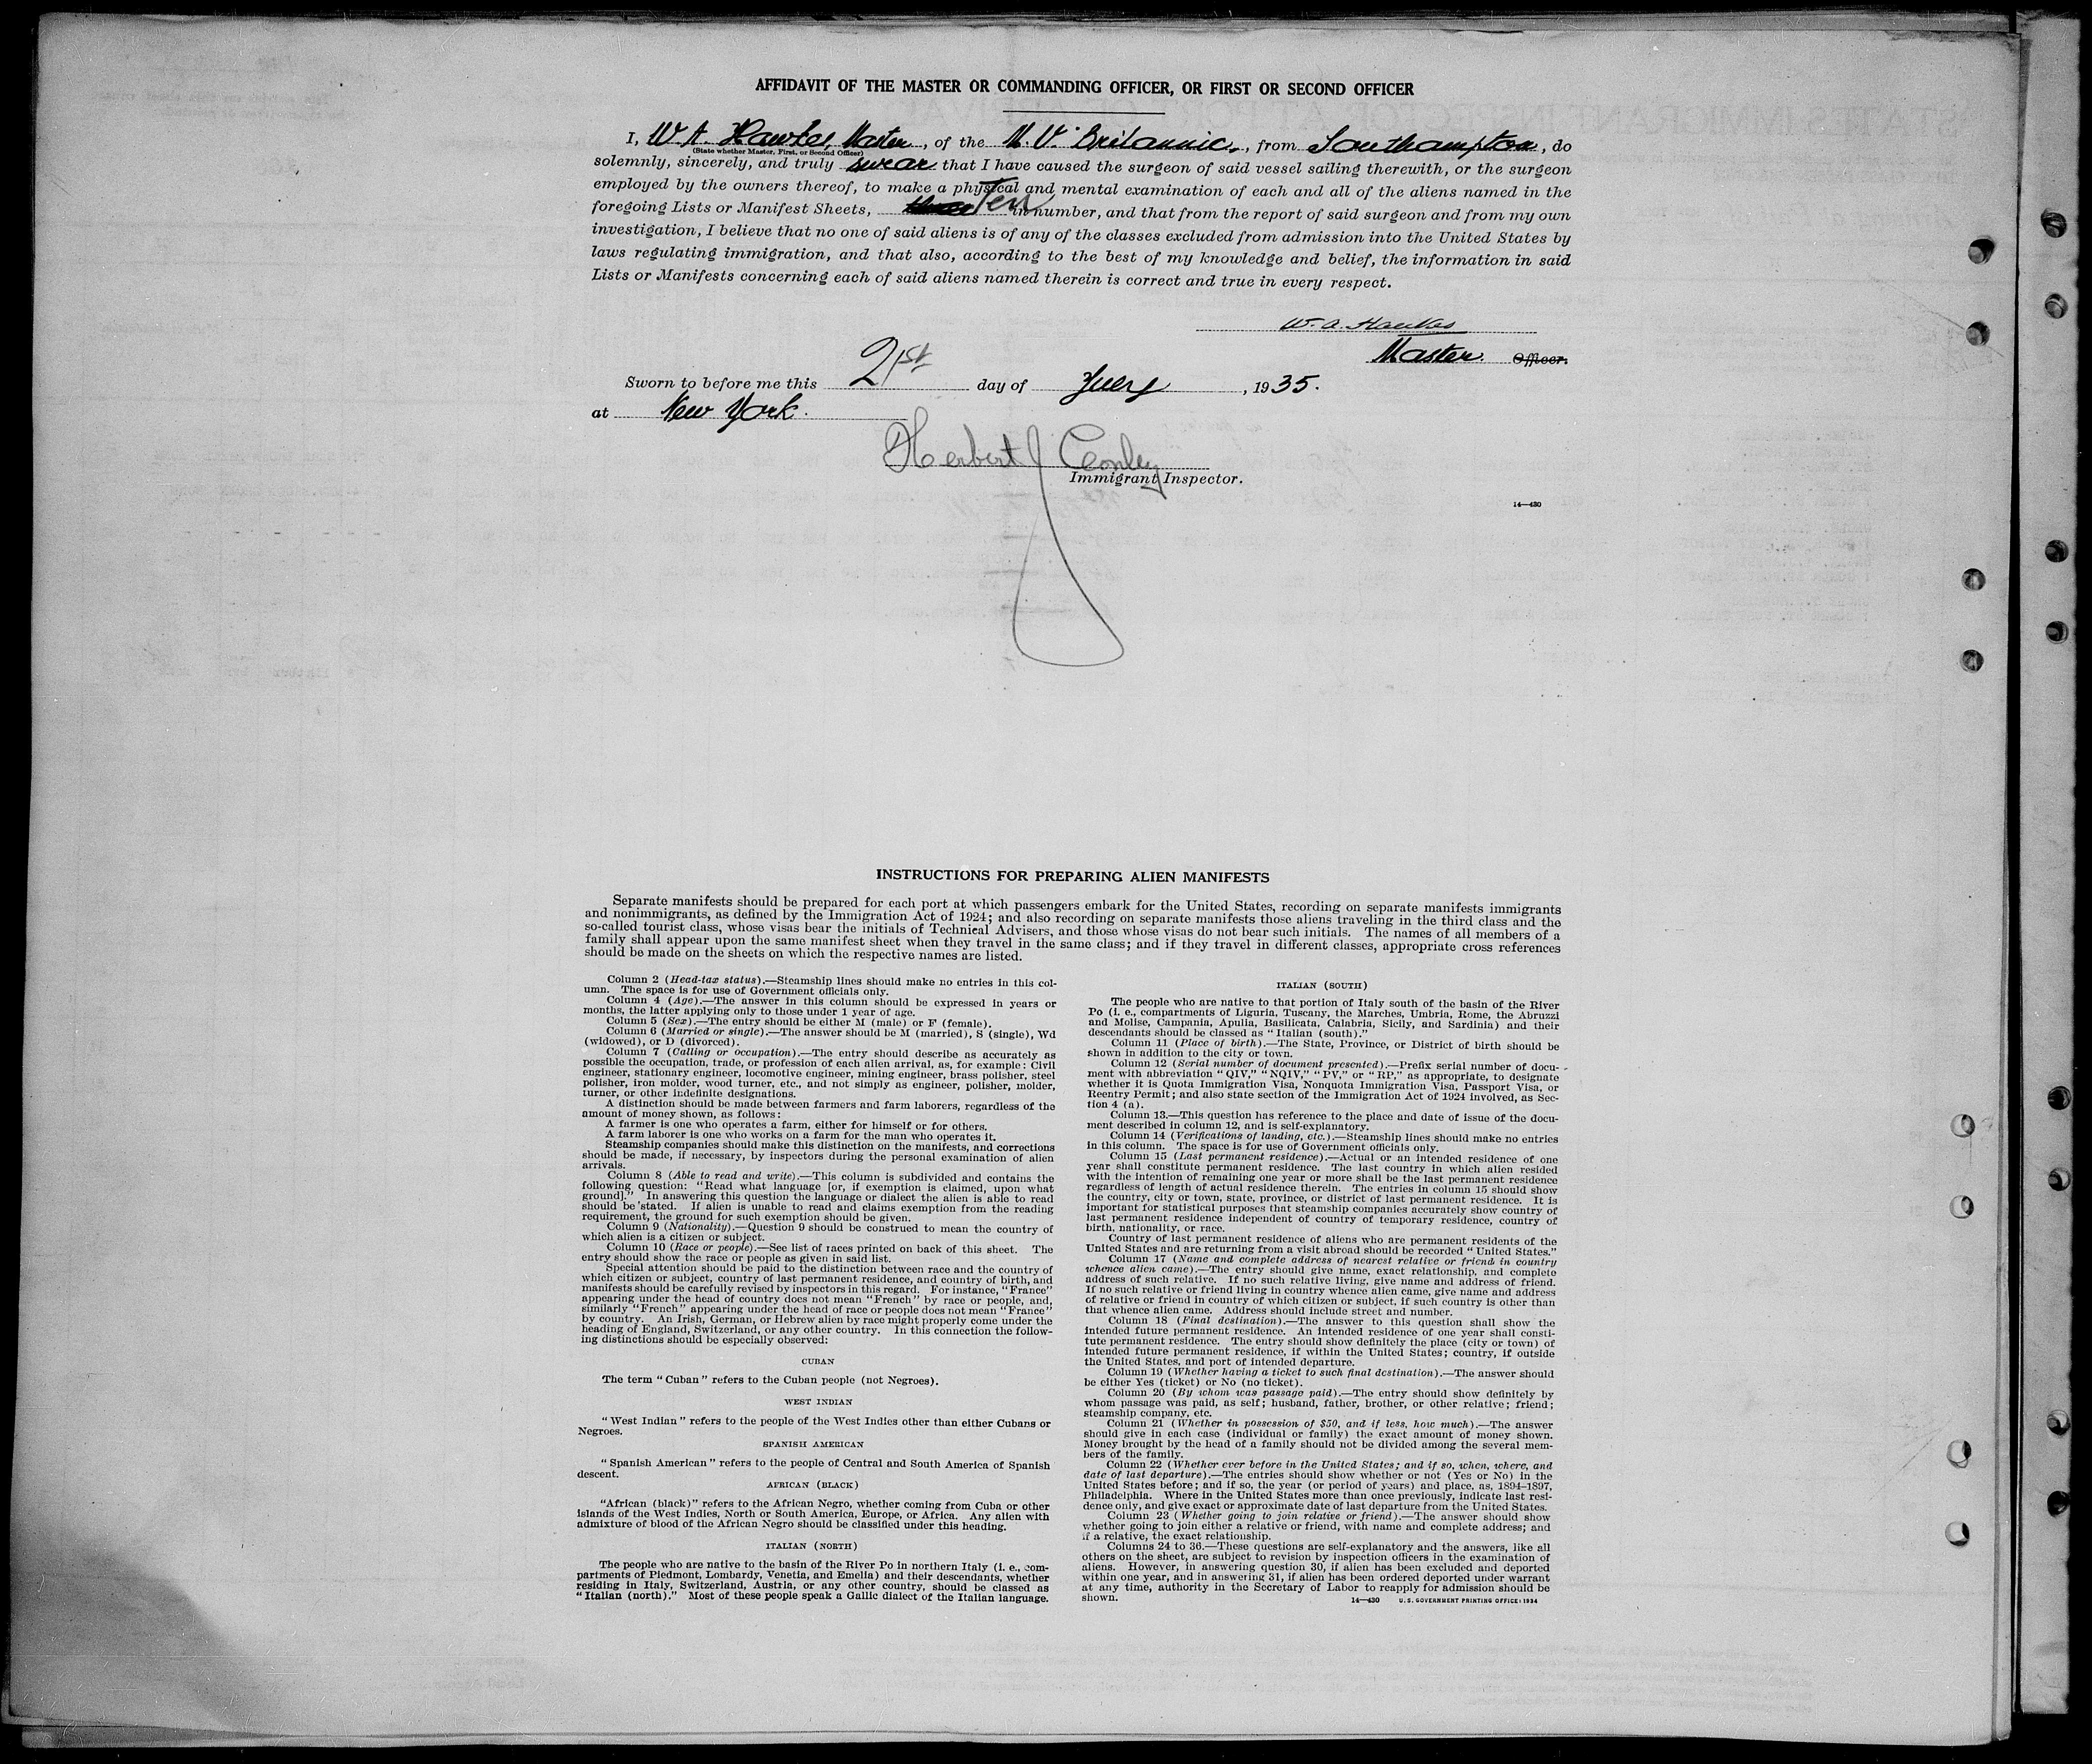 AFFIDAVIT OF THE MASTER OR COMMANDING OFFICER, OR FIRST OR SECOND OFFICER
I, W A. Hawkes, Master, of the M.V. Britannic, from Southampton, do
(State whether Master, First, or Second Officer)
solemnly, sincerely, and truly swear that I have caused the surgeon of said vessel sailing therewith, or the surgeon
employed by the owners thereof, to make a physical and mental examination of each and all of the aliens named in the
foregoing Lists or Manifest Sheets, Ten in number, and that from the report of said surgeon and from my own
investigation, I believe that no one of said aliens is of any of the classes excluded from admission into the United States by
laws regulating immigration, and that also, according to the best of my knowledge and belief, the information in said
Lists or Manifests concerning each of said aliens named therein is correct and true in every respect.
W. A. Hawkes
Master. Officer.
Sworn to before me this 21st day of July, 1935.
at New York.
Herbert J Conley
Immigrant Inspector.
14—430
INSTRUCTIONS FOR PREPARING ALIEN MANIFESTS
Separate manifests should be prepared for each port at which passengers embark for the United States, recording on separate manifests immigrants
and nonimmigrants, as defined by the Immigration Act of 1924; and also recording on separate manifests those aliens traveling in the third class and the
so-called tourist class, whose visas bear the initials of Technical Advisers, and those whose visas do not bear such initials. The names of all members of a
family shall appear upon the same manifest sheet when they travel in the same class; and if they travel in different classes, appropriate cross references
should be made on the sheets on which the respective names are listed.
Column 2 (Head-tax status).—Steamship lines should make no entries in this col-
umn. The space is for use of Government officials only.
Column 4 (Age).—The answer in this column should be expressed in years or
months, the latter applying only to those under 1 year of age.
Column 5 (Sex).—The entry should be either M (male) or F (female).
Column 6 (Married or single).—The answer should be M (married), S (single), Wd
(widowed), or D (divorced).
Column 7 (Calling or occupation).—The entry should describe as accurately as
possible the occupation, trade, or profession of each alien arrival, as, for example: Civil
engineer, stationary engineer, locomotive engineer, mining engineer, brass polisher, steel
polisher, iron molder, wood turner, etc., and not simply as engineer, polisher, molder,
turner, or other indefinite designations.
A distinction should be made between farmers and farm laborers, regardless of the
amount of money shown, as follows:
A farmer is one who operates a farm, either for himself or for others.
A farm laborer is one who works on a farm for the man who operates it.
Steamship companies should make this distinction on the manifests, and corrections
should be made, if necessary, by inspectors during the personal examination of alien
arrivals.
Column 8 (Able to read and write).—This column is subdivided and contains the
following question: "Read what language [or, if exemption is claimed, upon what
ground]." In answering this question the language or dialect the alien is able to read
should be stated. If alien is unable to read and claims exemption from the reading
requirement, the ground for such exemption should be given.
Column 9 (Nationality).—Question 9 should be construed to mean the country of
which alien is a citizen or subject.
Column 10 (Race or people).—See list of races printed on back of this sheet. The
entry should show the race or people as given in said list.
Special attention should be paid to the distinction between race and the country of
which citizen or subject, country of last permanent residence, and country of birth, and
manifests should be carefully revised by inspectors in this regard. For instance, "France"
appearing under the head of country does not mean "French" by race or people, and,
similarly "French" appearing under the head of race or people does not mean "France"
by country. An Irish, German, or Hebrew alien by race might properly come under the
heading of England, Switzerland, or any other country. In this connection the follow-
ing distinctions should be especially observed:
CUBAN
The term "Cuban" refers to the Cuban people (not Negroes).
WEST INDIAN
"West Indian" refers to the people of the West Indies other than either Cubans or
Negroes.
SPANISH AMERICAN
"Spanish American" refers to the people of Central and South America of Spanish
descent.
AFRICAN (BLACK)
"African (black)" refers to the African Negro, whether coming from Cuba or other
islands of the West Indies, North or South America, Europe, or Africa. Any alien with
admixture of blood of the African Negro should be classified under this heading.
ITALIAN (NORTH)
The people who are native to the basin of the River Po in northern Italy (i. e., com-
partments of Piedmont, Lombardy, Venetia, and Emelia) and their descendants, whether
residing in Italy, Switzerland, Austria, or any other country, should be classed as
"Italian (north)." Most of these people speak a Gallic dialect of the Italian language.
ITALIAN (SOUTH)
The people who are native to that portion of Italy south of the basin of the River
Po (i. e., compartments of Liguria, Tuscany, the Marches, Umbria, Rome, the Abruzzi
and Molise, Campania, Apulia, Basilicata, Calabria, Sicily, and Sardinia) and their
descendants should be classed as "Italian (south)."
Column 11 (Place of birth).—The State, Province, or District of birth should be
shown in addition to the city or town.
Column 12 (Serial number of document presented).—Prefix serial number of docu-
ment with abbreviation "QIV," "NQIV," "PV," or "RP," as appropriate, to designate
whether it is Quota Immigration Visa, Nonquota Immigration Visa, Passport Visa, or
Reentry Permit; and also state section of the Immigration Act of 1924 involved, as Sec-
tion 4 (a).
Column 13.—This question has reference to the place and date of issue of the docu-
ment described in column 12, and is self-explanatory.
Column 14 (Verifications of landing, etc.).—Steamship lines should make no entries
in this column. The space is for use of Government officials only.
Column 15 (Last permanent residence).—Actual or an intended residence of one
year shall constitute permanent residence. The last country in which alien resided
with the intention of remaining one year or more shall be the last permanent residence
regardless of length of actual residence therein. The entries in column 15 should show
the country, city or town, state, province, or district of last permanent residence. It is
important for statistical purposes that steamship companies accurately show country of
last permanent residence independent of country of temporary residence, country of
birth, nationality, or race.
Country of last permanent residence of aliens who are permanent residents of the
United States and are returning from a visit abroad should be recorded "United States."
Column 17 (Name and complete address of nearest relative or friend in country
whence alien came).—The entry should give name, exact relationship, and complete
address of such relative. If no such relative living, give name and address of friend.
If no such relative or friend living in country whence alien came, give name and address
of relative or friend in country of which citizen or subject, if such country is other than
that whence alien came. Address should include street and number.
Column 18 (Final destination).—The answer to this question shall show the
intended future permanent residence. An intended residence of one year shall consti-
tute permanent residence. The entry should show definitely the place (city or town) of
intended future permanent residence, if within the United States; country, if outside
the United States, and port of intended departure.
Column 19 (Whether having a ticket to such final destination).—The answer should
be either Yes (ticket) or No (no ticket).
Column 20 (By whom was passage paid).—The entry should show definitely by
whom passage was paid, as self; husband, father, brother, or other relative; friend;
steamship company, etc.
Column 21 (Whether in possession of $50, and if less, how much).—The answer
should give in each case (individual or family) the exact amount of money shown.
Money brought by the head of a family should not be divided among the several mem-
bers of the family.
Column 22 (Whether ever before in the United States; and if so, when, where, and
date of last departure).—The entries should show whether or not (Yes or No) in the
United States before; and if so, the year (or period of years) and place, as, 1894–1897,
Philadelphia. Where in the United States more than once previously, indicate last resi-
dence only, and give exact or approximate date of last departure from the United States.
Column 23 (Whether going to join relative or friend).—The answer should show
whether going to join either a relative or friend, with name and complete address; and
if a relative, the exact relationship.
Columns 24 to 36.—These questions are self-explanatory and the answers, like all
others on the sheet, are subject to revision by inspection officers in the examination of
aliens. However, in answering question 30, if alien has been excluded and deported
within one year, and in answering 31, if alien has been ordered deported under warrant
at any time, authority in the Secretary of Labor to reapply for admission should be
shown.
14—430 U. S. GOVERNMENT PRINTING OFFICE: 1934